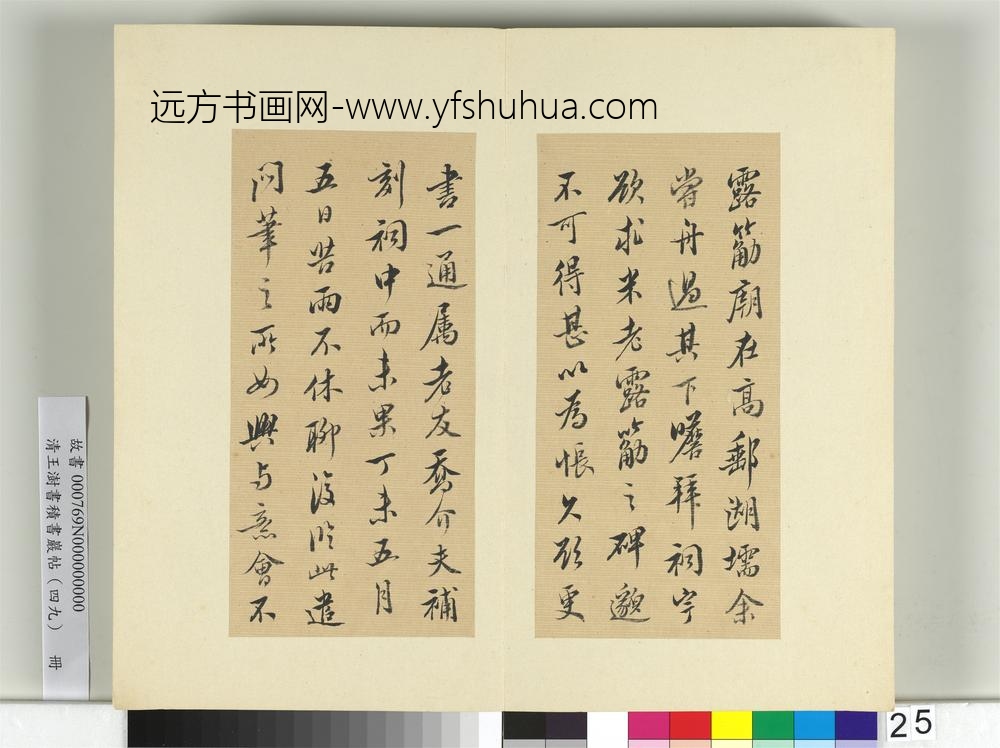 远方书画网-www.yfshuhua.com
露筋廟在高郵湖壖余
嘗舟過其下瞻拜祠宇
欲求米老露筋之碑邈
不可得甚以為悵久欲更
書一通属老友喬介夫補
刻祠中而未果丁未五月
五日苦雨不休聊復臨此遣
悶筆之所如興與意會不
故書 000769N000000000
清王澍書積書巖帖(四九) 冊
25